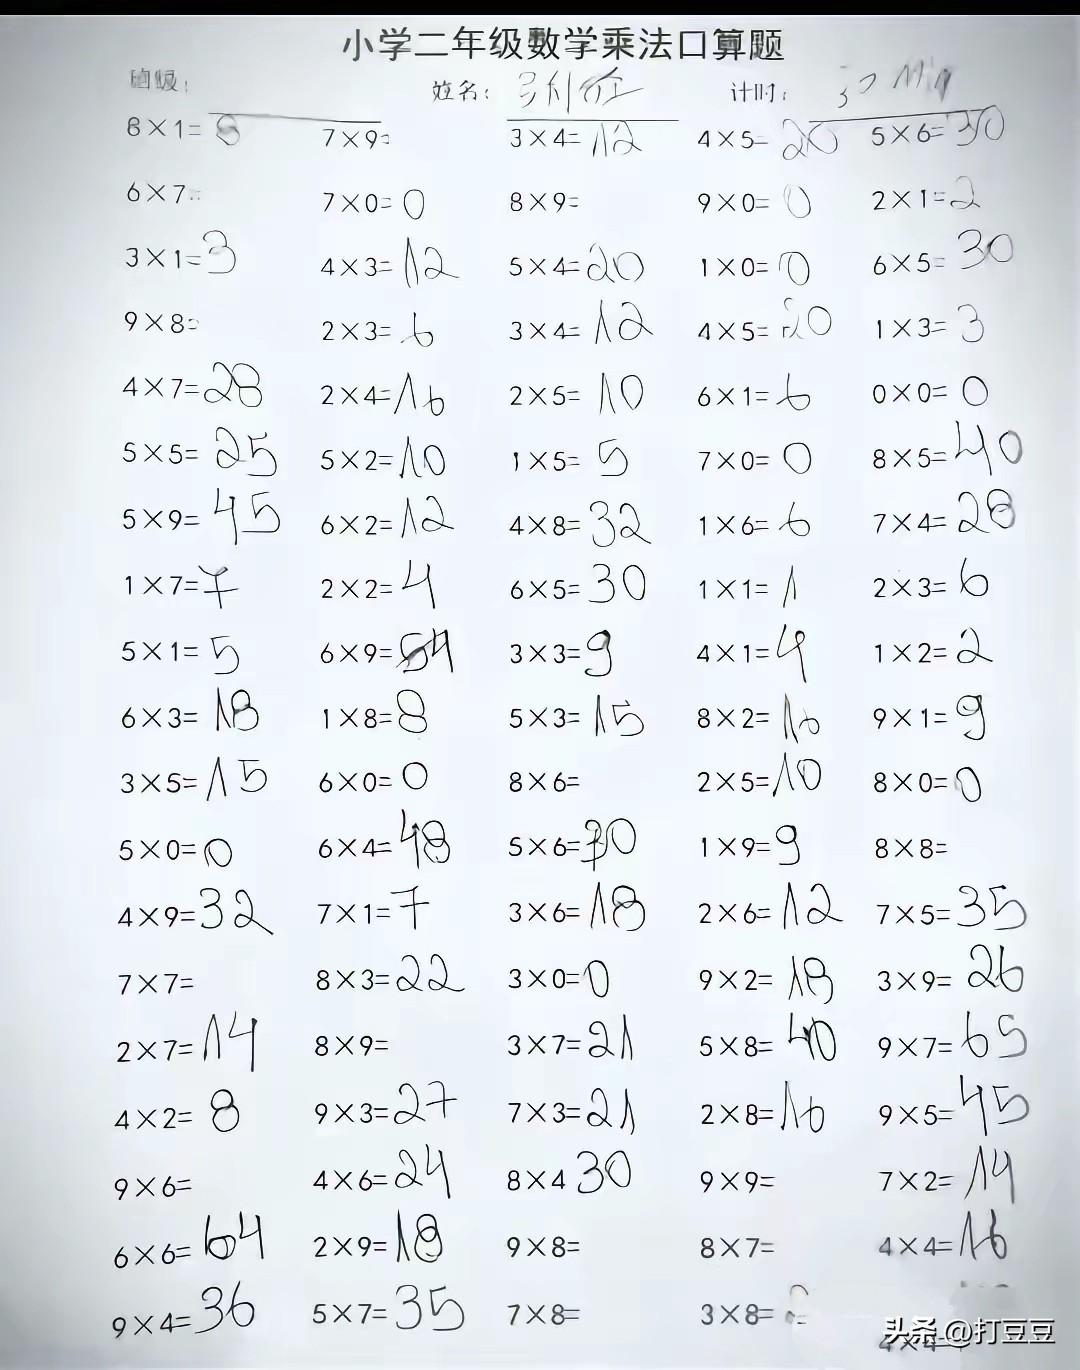 小学二年级数学乘法口算题
班级： 姓名： 计时：30 Min
8×1=8 7×9= 3×4=12 4×5=20 5×6=30
6×7= 7×0=0 8×9= 9×0=0 2×1=2
3×1=3 4×3=12 5×4=20 1×0=0 6×5=30
9×8= 2×3=6 3×4=12 4×5=20 1×3=3
4×7=28 2×4=16 2×5=10 6×1=6 0×0=0
5×5=25 5×2=10 1×5=5 7×0=0 8×5=40
5×9=45 6×2=12 4×8=32 1×6=6 7×4=28
1×7=7 2×2=4 6×5=30 1×1=1 2×3=6
5×1=5 6×9=54 3×3=9 4×1=4 1×2=2
6×3=18 1×8=8 5×3=15 8×2=16 9×1=9
3×5=15 6×0=0 8×6= 2×5=10 8×0=0
5×0=0 6×4=48 5×6=30 1×9=9 8×8=
4×9=32 7×1=7 3×6=18 2×6=12 7×5=35
7×7= 8×3=22 3×0=0 9×2=18 3×9=26
2×7=14 8×9= 3×7=21 5×8=40 9×7=65
4×2=8 9×3=27 7×3=21 2×8=16 9×5=45
9×6= 4×6=24 8×4 30 9×9= 7×2=14
6×6=64 2×9=18 9×8= 8×7= 4×4=16
9×4=36 5×7=35 7×8= 3×8=
头条 @打豆豆